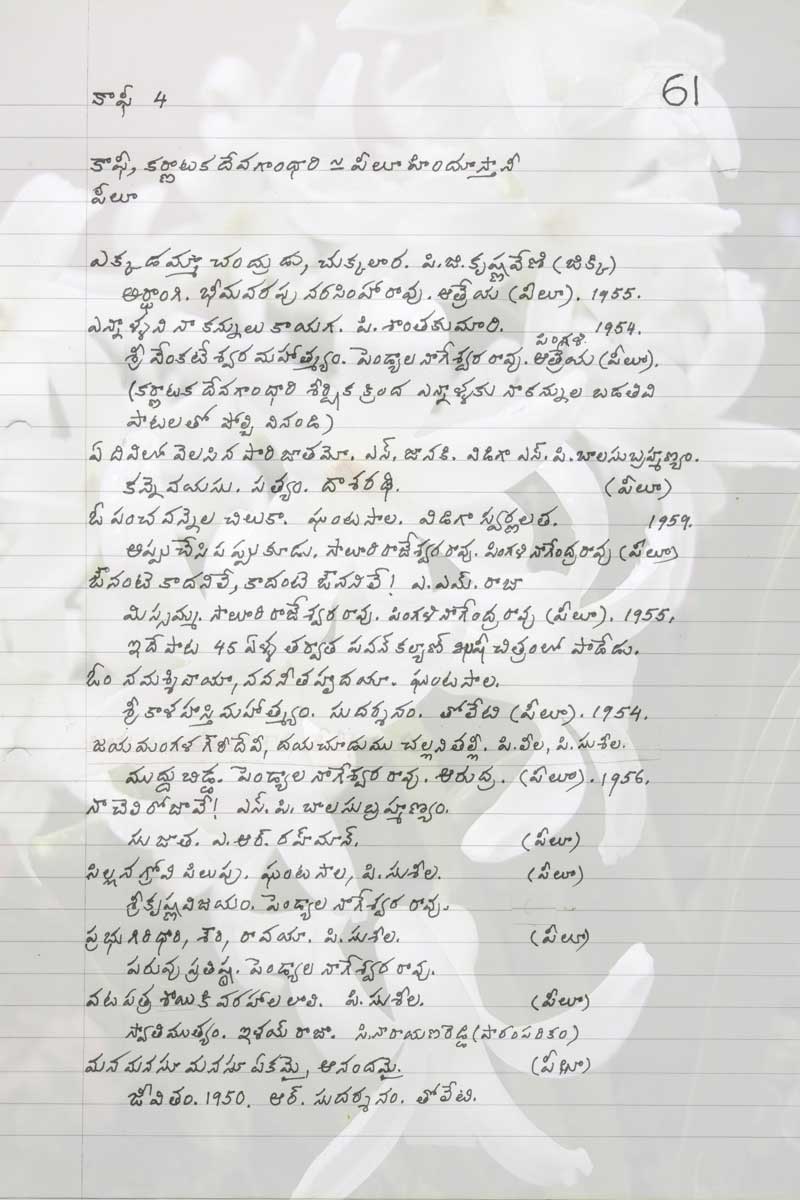 కాఫీ 4
61
కాఫీ, కర్ణాటక దేవగాంధారి ≃ పీలూ హిందూస్తానీ
పీలూ
ఎక్కడమ్మా చంద్రుడు, చుక్కలార. పి.జి.కృష్ణవేణి (జిక్కి)
అర్ధాంగి. భీమవరపు నరసింహారావు. ఆత్రేయ (పీలూ). 1955.
ఎన్నాళ్ళని నా కన్నులు కాయగ. పి. శాంతకుమారి. 1954.
పింగళి
శ్రీ వేంకటేశ్వర మహాత్మ్యం. పెండ్యాల నాగేశ్వర రావు. ఆత్రేయ (పీలూ).
(కర్ణాటక దేవగాంధారి శీర్షిక క్రింద ఎన్నాళ్ళకు నాకన్నుల బడతివి
పాటలతో పోల్చి వినండి)
ఏ దివిలో వెలసిన పారిజాతమో. ఎస్. జానకి. విడిగా ఎస్. పి. బాలసుబ్రహ్మణ్యం.
కన్నె వయసు. సత్యం. దాశరథి. (పీలూ)
ఓ పంచవన్నెల చిలుకా. ఘంటసాల. విడిగా స్వర్ణలత. 1959.
అప్పుచేసి పప్పుకూడు. సాలూరి రాజేశ్వర రావు. పింగళి నాగేంద్రరావు (పీలూ)
ఔనంటె కాదనిలే, కాదంటె ఔననిలే! ఎ. ఎమ్. రాజా
మిస్సమ్మ. సాలూరి రాజేశ్వర రావు. పింగళి నాగేంద్ర రావు (పీలూ). 1955.
ఇదే పాట 45 ఏళ్ళ తర్వాత పవన్ కల్యాణ్ ఖుషీ చిత్రంలో పాడేడు.
ఓం నమశ్శివాయా, నవనీత హృదయా. ఘంటసాల.
శ్రీ కాళహస్తి మహాత్మ్యం. సుదర్శనం. తోలేటి (పీలూ). 1954.
జయమంగళ గౌరీదేవీ, దయచూడుము చల్లని తల్లీ. పి. లీల, పి. సుశీల.
ముద్దు బిడ్డ. పెండ్యాల నాగేశ్వర రావు. ఆరుద్ర. (పీలూ). 1956.
నా చెలి రోజావే! ఎస్. పి. బాలసుబ్రహ్మణ్యం.
సుజాత. ఎ. ఆర్. రహ్మాన్. (పీలూ)
పిల్లనగ్రోవి పిలుపు. ఘంటసాల, పి. సుశీల. (పీలూ)
శ్రీకృష్ణవిజయం. పెండ్యాల నాగేశ్వర రావు.
ప్రభు గిరిధారి, శౌరి, రావయా. పి. సుశీల. (పీలూ)
పరువు ప్రతిష్ఠ. పెండ్యాల నాగేశ్వర రావు.
వటపత్ర శాయికి వరహాల లాలి. పి. సుశీల. (పీలూ)
స్వాతిముత్యం. ఇళయ్ రాజా. సి.నారాయణరెడ్డి (పారంపరికం)
మనమనసూ మనసూ ఏకమై, ఆనందమై. (పీలూ)
జీవితం. 1950. ఆర్. సుదర్శనం. తోలేటి.